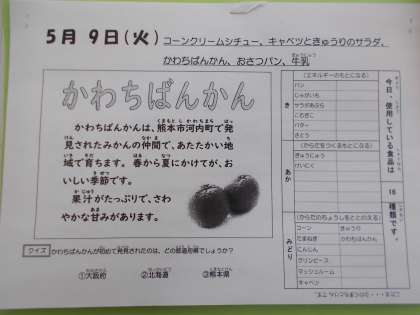 5月 9日(火)
コーンクリームシチュー、キャベツときゅうりのサラダ、
かわちばんかん、おさつパン、牛乳
かわちばんかん
かわちばんかんは、熊本市河内町で発
見されたみかんの仲間で、あたたかい地
域で育ちます。春から夏にかけてが、お
いしい季節です。
果汁がたっぷりで、さわ
やかな甘みがあります。
クイズ かわちばんかんが初めて発見されたのは、どの都道府県でしょうか?
①大阪府 ②北海道 ③熊本県
今日、使用している食品は
18
種類です。
き
(エネルギーのもとになる)
パン
じゃがいも
サラダあぶら
こむぎこ
バター
さとう
あか
(からだをつくるもとになる)
ぎゅうにゅう
けいにく
みどり
(からだのちょうしをととのえる)
コーン きゅうり
たまねぎ かわちばんかん
にんじん
グリンピース
マッシュルーム
キャベツ